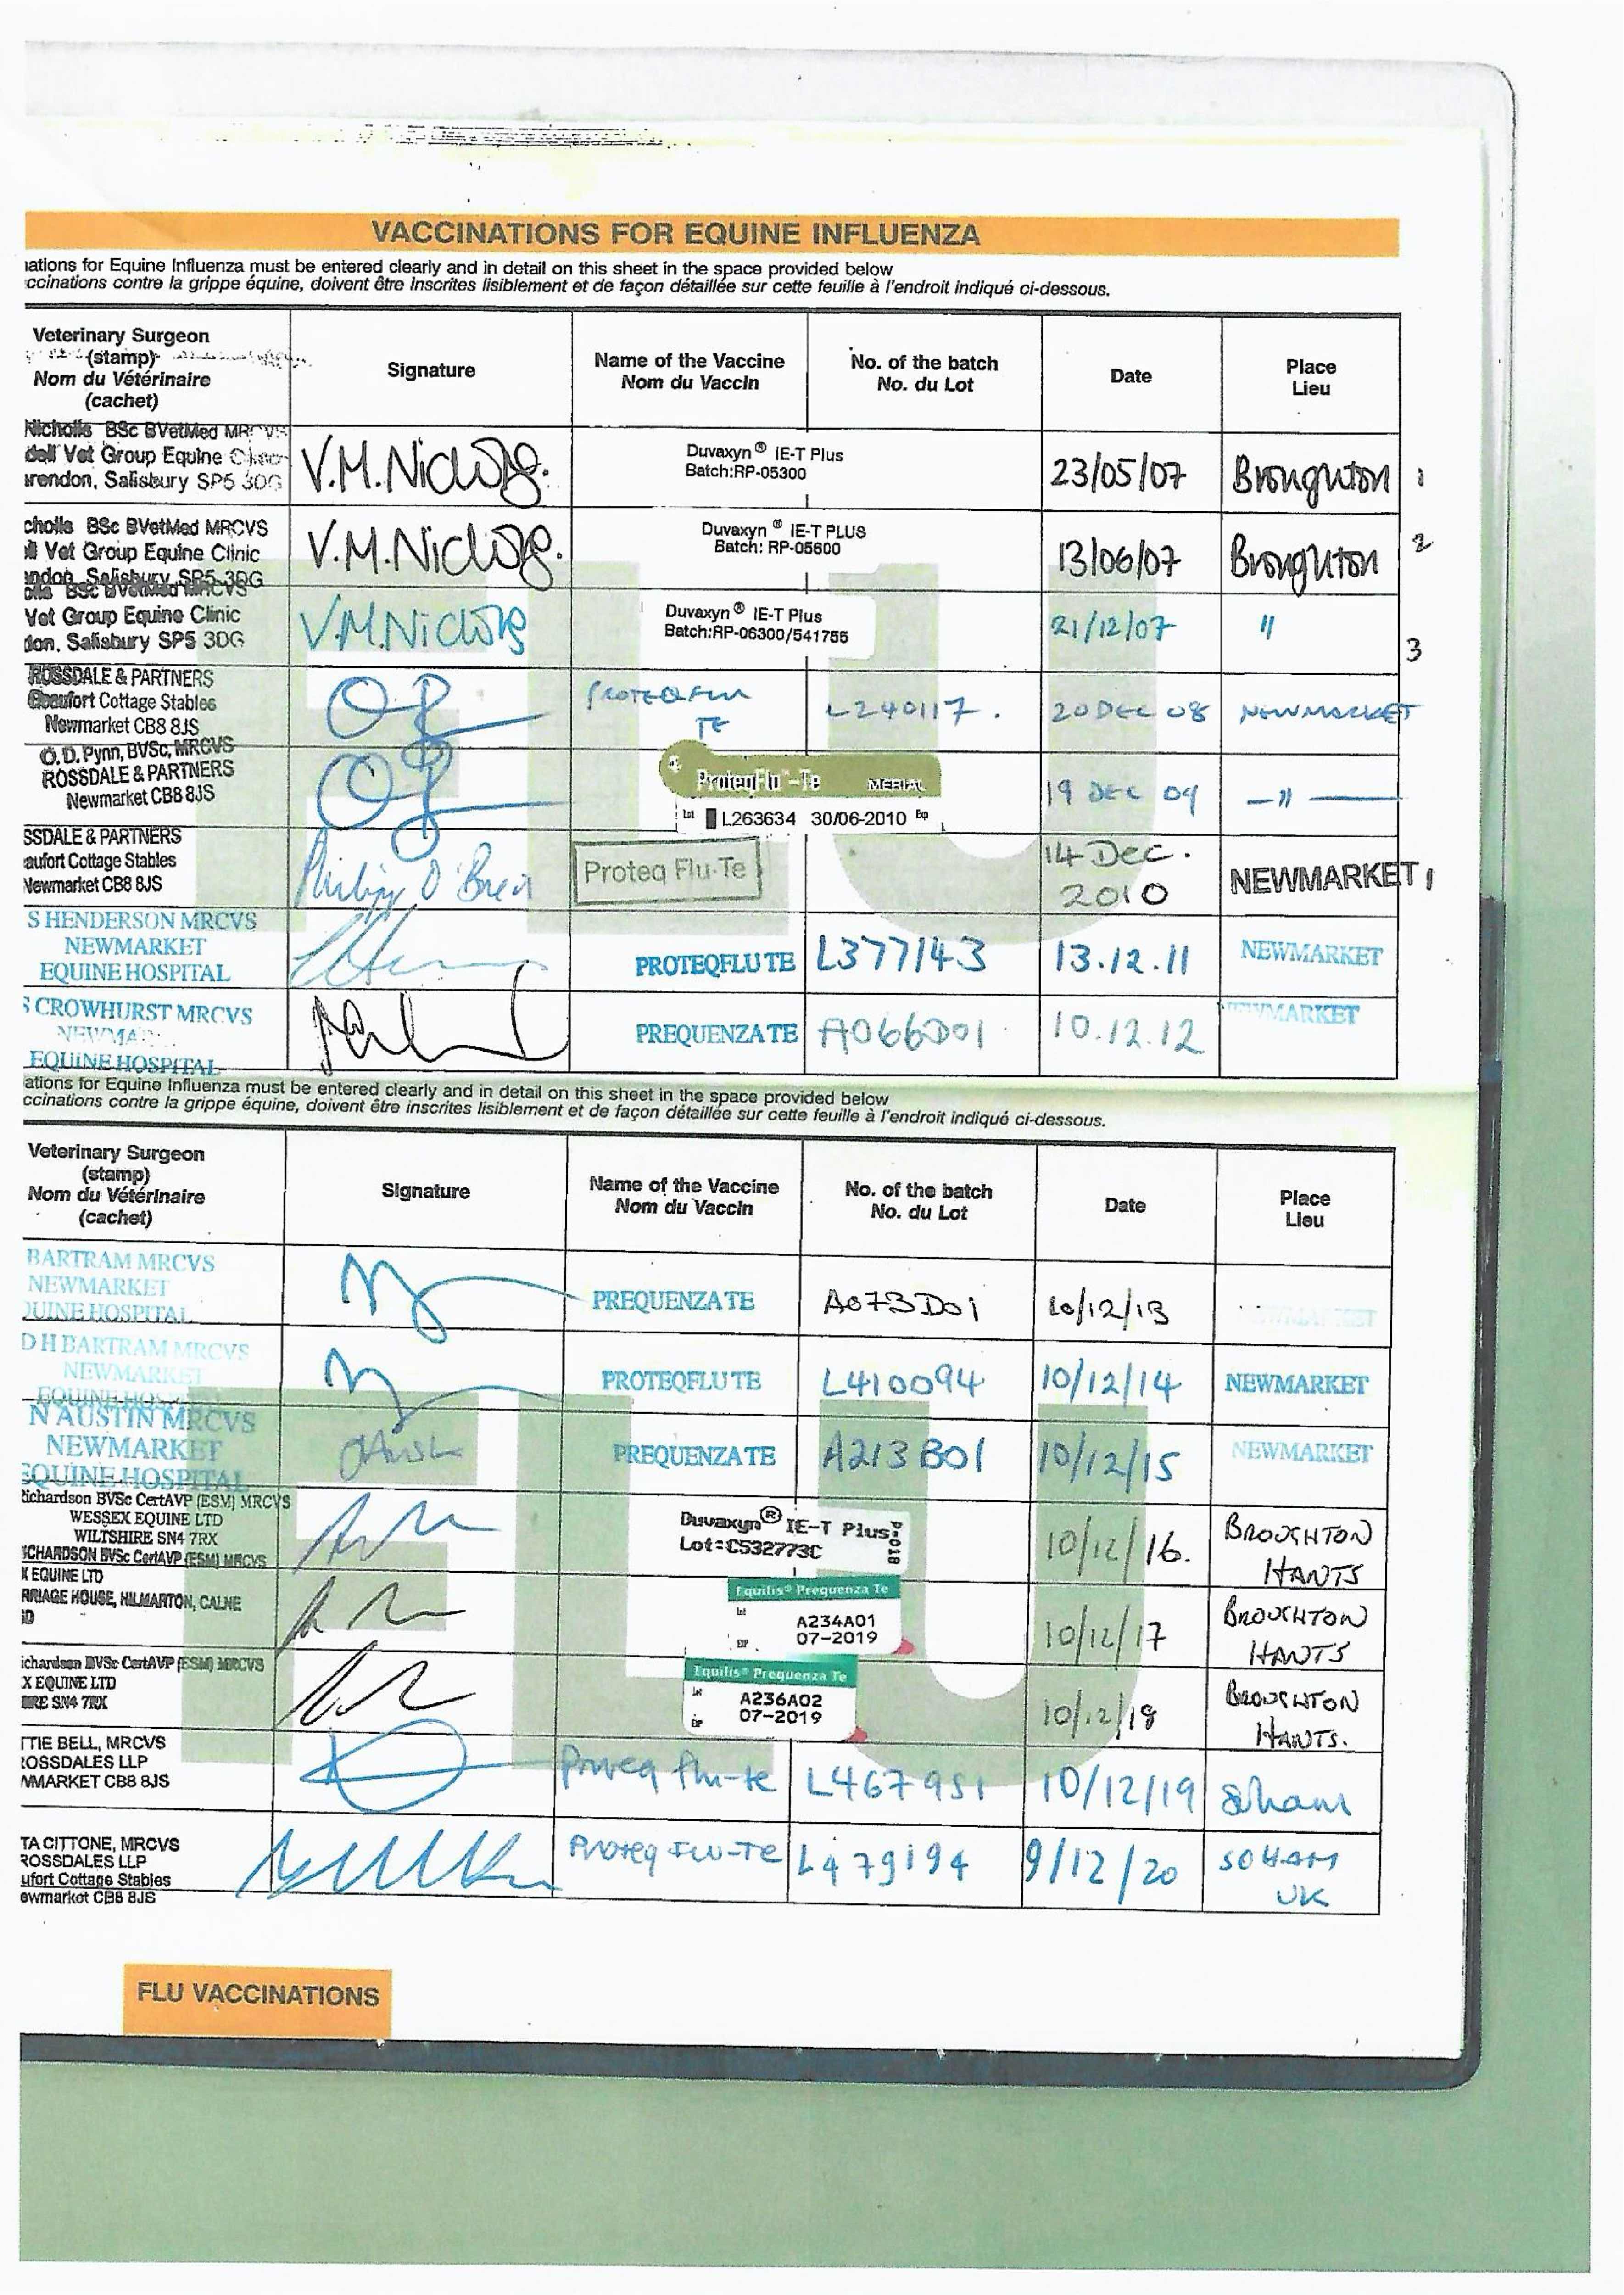 VACCINATIONS FOR EQUINE INFLUENZA
ations for Equine Influenza must be entered clearly and in detail on this sheet in the space provided below
ccinations contre la grippe équine, doivent être inscrites lisiblement et de façon détaillée sur cette feuille à l'endroit indiqué ci-dessous.
Veterinary Surgeon
(stamp)
Nom du Vétérinaire
(cachet)
Signature
Name of the Vaccine
Nom du Vaccin
No. of the batch
No. du Lot
Date
Place
Lieu
Nicholls BSc BVetMed MRCVS
dell Vet Group Equine Clinic
arendon, Salisbury SP5 3DG
V.M.Nicholls.
Duvaxyn® IE-T Plus
Batch:RP-05300
23/05/07
Broughton
1
cholls BSc BVetMed MRCVS
ll Vet Group Equine Clinic
endon, Salisbury SP5 3DG
V.M.Nicholls.
Duvaxyn® IE-T PLUS
Batch: RP-05600
13/06/07
Broughton
2
olls BSc BVetMed MRCVS
Vet Group Equine Clinic
don, Salisbury SP5 3DG
V.M.Nicholls
Duvaxyn® IE-T Plus
Batch:RP-06300/541755
21/12/07
"
3
ROSSDALE & PARTNERS
Beaufort Cottage Stables
Newmarket CB8 8JS
PROTEQFLU
TE
L240117.
20 DEC 08
NEWMARKET
O.D. Pynn, BVSc, MRCVS
ROSSDALE & PARTNERS
Newmarket CB8 8JS
ProteqFlu™-Te MERIAL
Lot L263634 30/06-2010 Exp
19 DEC 09
—"—
SSDALE & PARTNERS
aufort Cottage Stables
Newmarket CB8 8JS
Philip O'Brien
Proteq Flu-Te
14 Dec.
2010
NEWMARKET
1
S HENDERSON MRCVS
NEWMARKET
EQUINE HOSPITAL
PROTEQFLU TE
L377143
13.12.11
NEWMARKET
S CROWHURST MRCVS
NEWMA
EQUINE HOSPITAL
PREQUENZA TE
A066D01
10.12.12
NEWMARKET
ations for Equine Influenza must be entered clearly and in detail on this sheet in the space provided below
ccinations contre la grippe équine, doivent être inscrites lisiblement et de façon détaillée sur cette feuille à l'endroit indiqué ci-dessous.
Veterinary Surgeon
(stamp)
Nom du Vétérinaire
(cachet)
Signature
Name of the Vaccine
Nom du Vaccin
No. of the batch
No. du Lot
Date
Place
Lieu
BARTRAM MRCVS
NEWMARKET
QUINE HOSPITAL
PREQUENZA TE
A073D01
10/12/13
NEWMARKET
D H BARTRAM MRCVS
NEWMARKET
EQUINE HOS
PROTEQFLU TE
L410094
10/12/14
NEWMARKET
N AUSTIN MRCVS
NEWMARKET
EQUINE HOSPITAL
PREQUENZA TE
A213B01
10/12/15
NEWMARKET
Richardson BVSc CertAVP (ESM) MRCVS
WESSEX EQUINE LTD
WILTSHIRE SN4 7RX
Duvaxyn® IE-T Plus
Lot:C532773C
10/12/16.
BROUGHTON
HANTS
ICHARDSON BVSc CertAVP (ESM) MRCVS
X EQUINE LTD
RRIAGE HOUSE, HILMARTON, CALNE
Equilis® Prequenza Te
Lot A234A01
EXP 07-2019
10/12/17
BROUGHTON
HANTS
ichardson BVSc CertAVP (ESM) MRCVS
X EQUINE LTD
IRE SN4 7RX
Equilis® Prequenza Te
Lot A236A02
EXP 07-2019
10/12/18
BROUGHTON
HANTS.
TTIE BELL, MRCVS
ROSSDALES LLP
WMARKET CB8 8JS
Proteq flu-te
L467951
10/12/19
Soham
TA CITTONE, MRCVS
ROSSDALES LLP
ufort Cottage Stables
ewmarket CB8 8JS
Proteq FLU-TE
L479194
9/12/20
SOHAM
UK
FLU
FLU
FLU VACCINATIONS